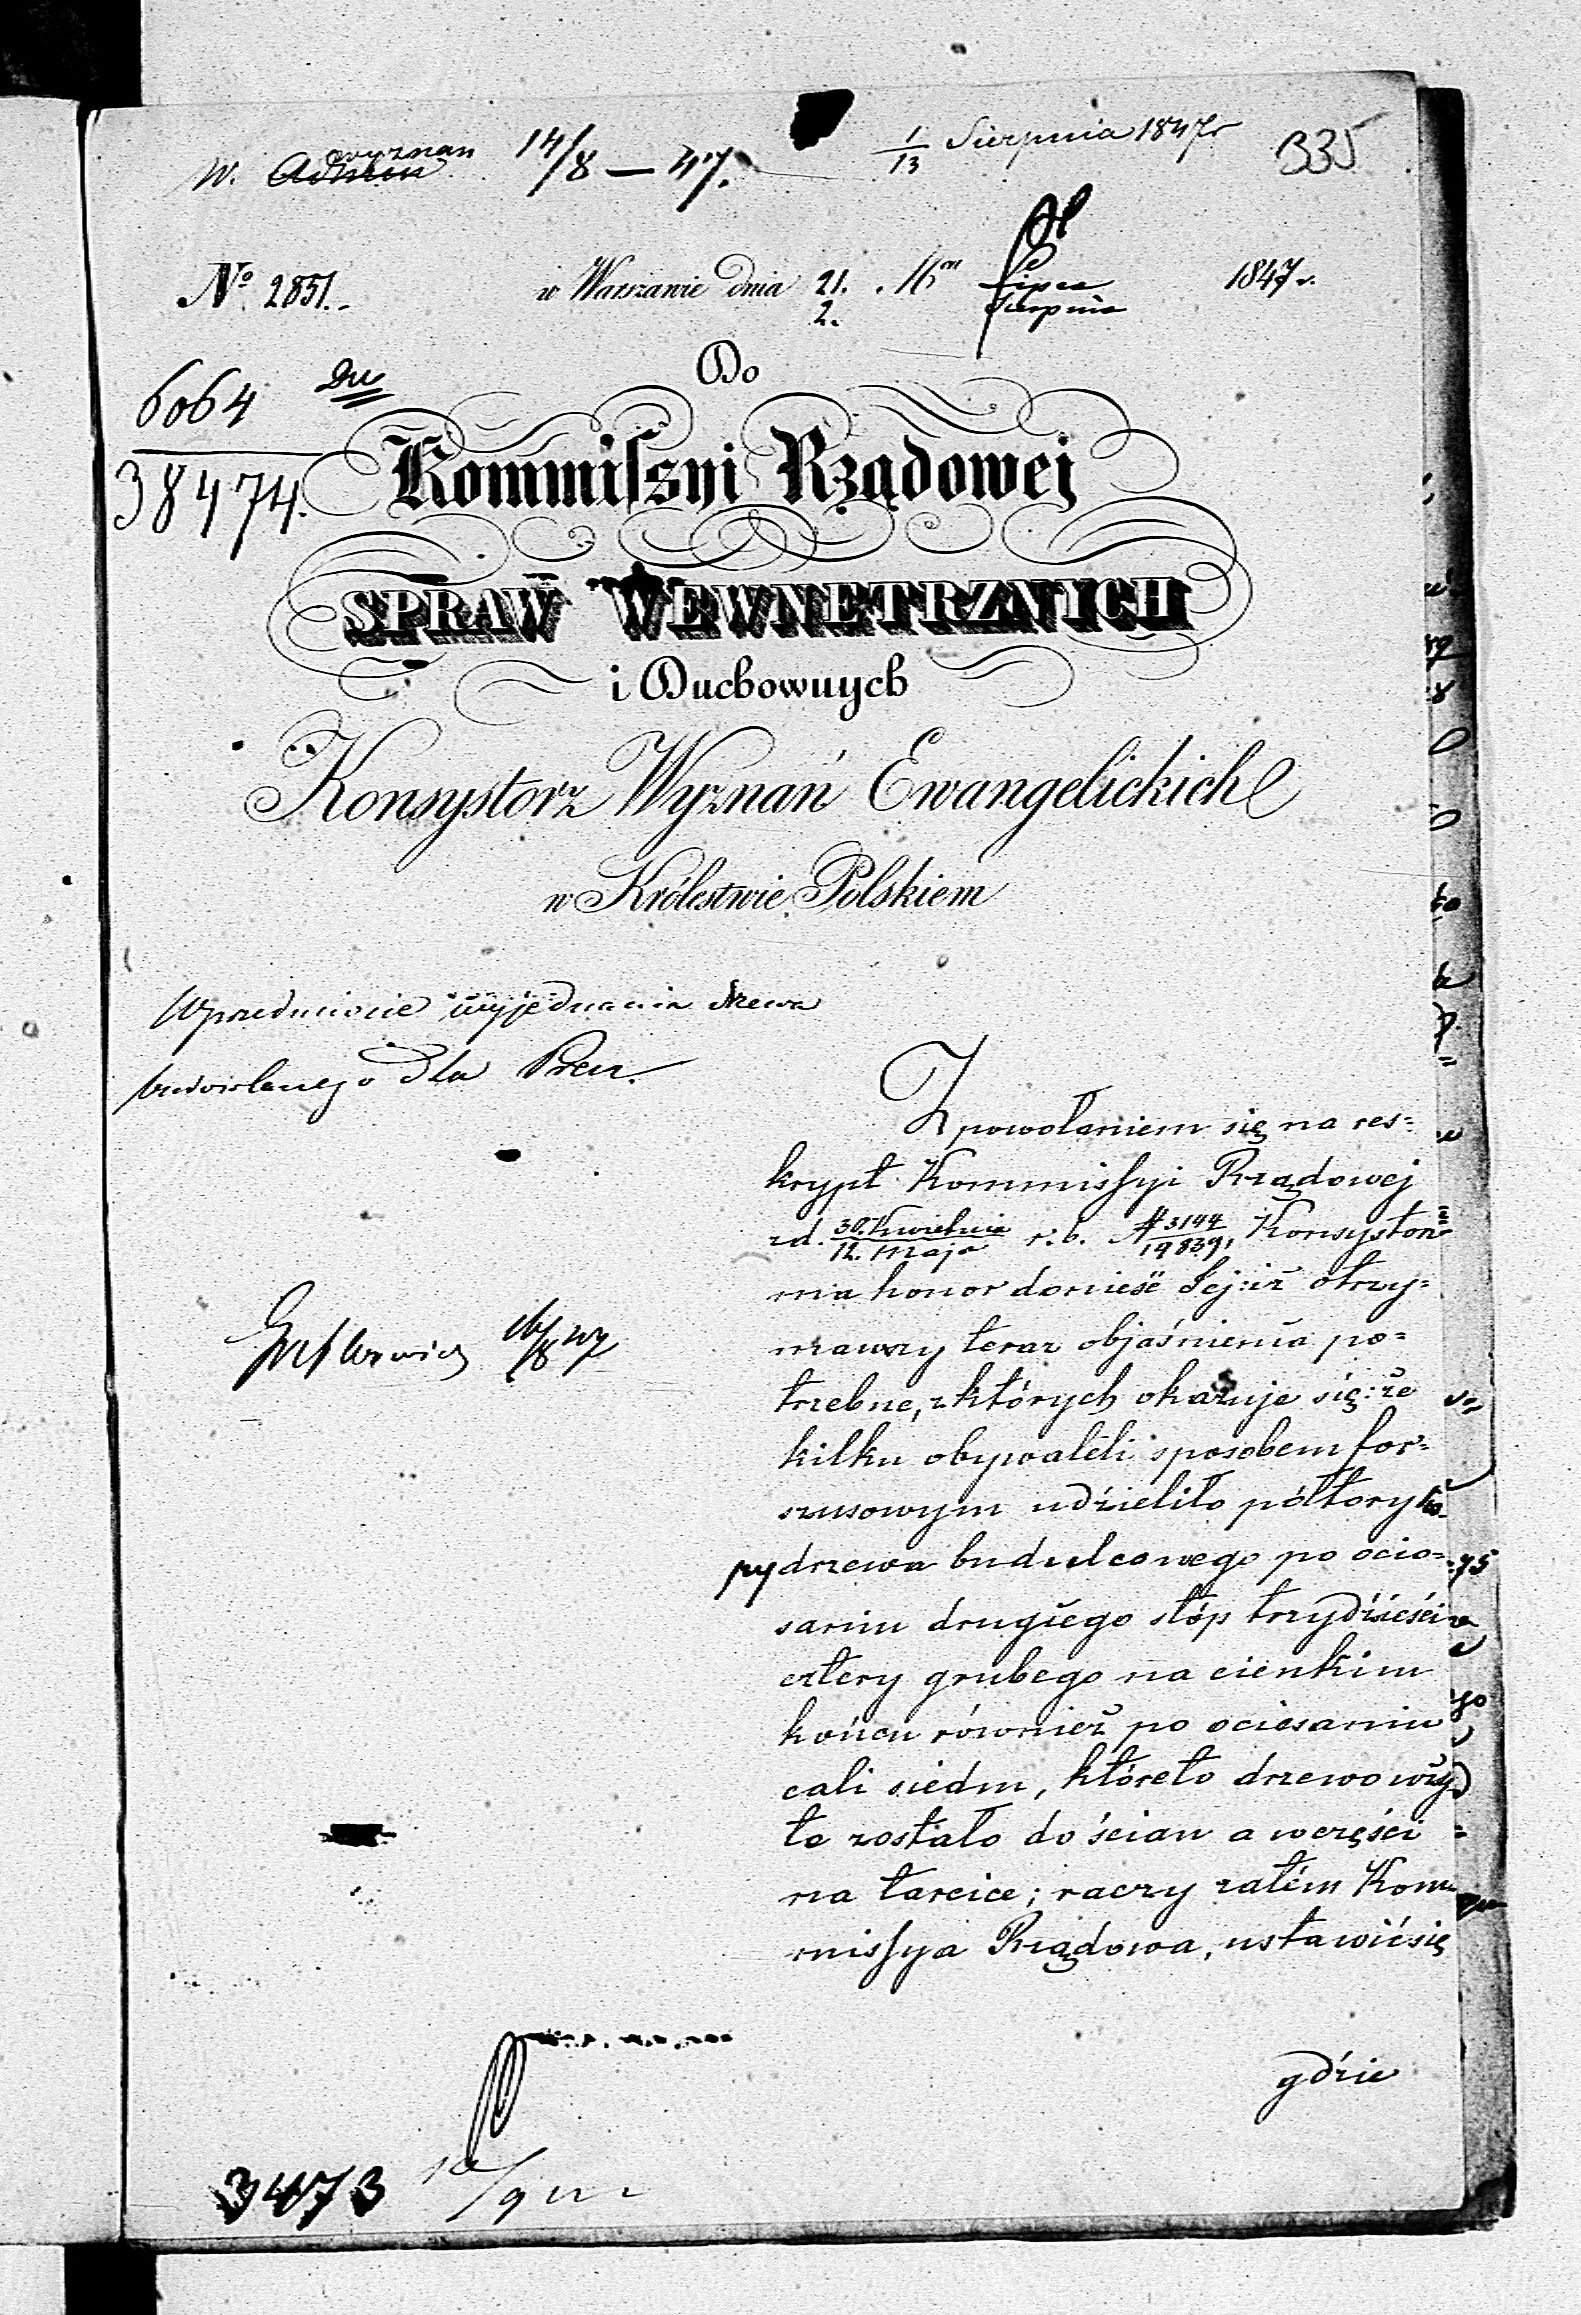 W. Admin wyznan 14/8 — 47. 1/13 Sierpnia 1847r 335
No 2851. w Warszawie dnia 21. Mca Lipca 1847 r.
2. Sierpnia
6064
38474.
Do
Kommissyi Rządowej
SPRAW WEWNĘTRZNYCH
i Duchownych
Konsystorz Wyznań Ewangelickich
w Królestwie Polskiem
W przedmiocie wyjednania drzewa
budowlanego dla Pren.
Z powołaniem się na res=
krypt Kommissyi Rządowej
z d. 30. Kwietnia / 12. Maja r. b. N 3144 / 19839, Konsystorz
ma honor donieść Jej: iż otrzy=
mawszy teraz objaśnienia po=
trzebne, z których okazuje się: że
kilku obywateli sposobem for=
szusowym udzieliło półtory ko=
py drzewa budulcowego po ocio=
saniu drugiego stóp trzydzieści
cztery grubego na cienkim
końcu również po ociesaniu
cali siedm, któreto drzewo uży
te zostało do ścian a w części
na tarcice; raczy zatém Kom=
missya Rządowa, ustawić się
gdzie
3473